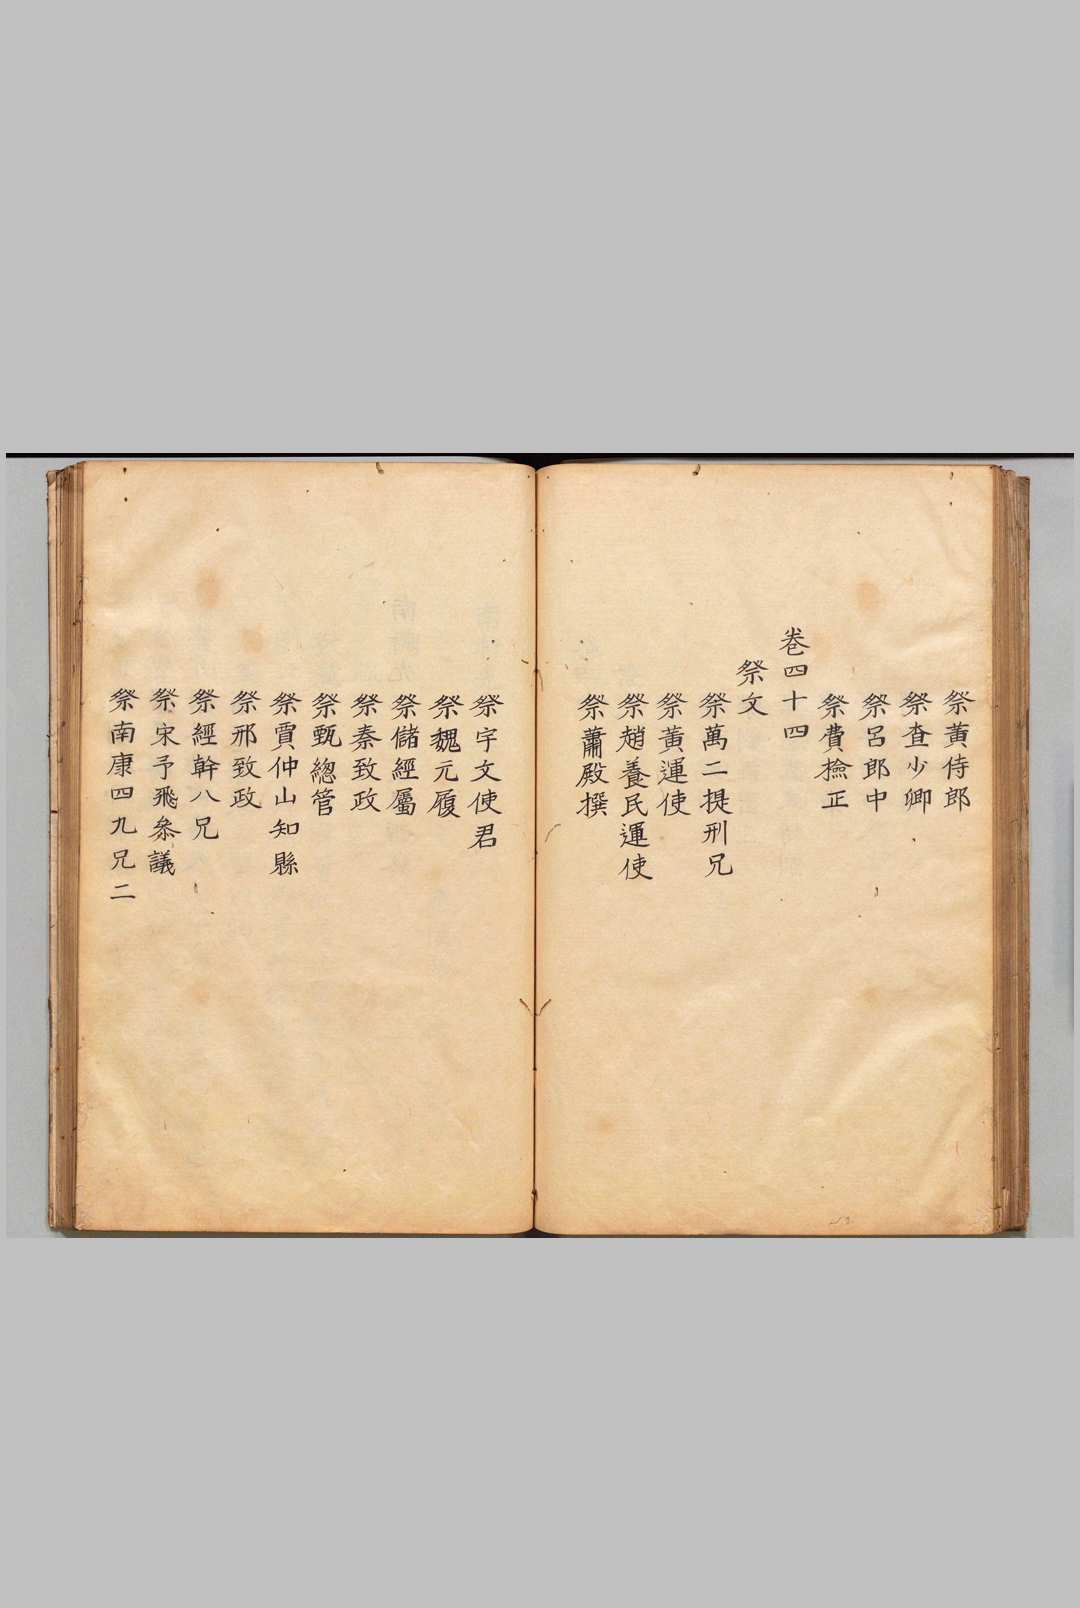 祭黄侍郎
祭查少卿
祭呂郎中
祭費檢正
卷四十四
祭文
祭萬二提刑兄
祭黃運使
祭趙養民運使
祭蕭殿撰
祭宇文使君
祭魏元履
祭儲經屬
祭秦致政
祭甄總管
祭賈仲山知縣
祭邢致政
祭經幹八兄
祭宋予飛叅議
祭南康四九兄二